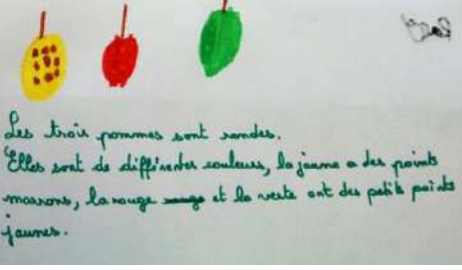 Les trois pommes sont rondes.
Elles sont de différentes couleurs, la jaune a des points
marrons, la rouge rouge et la verte ont des petits points
jaunes.